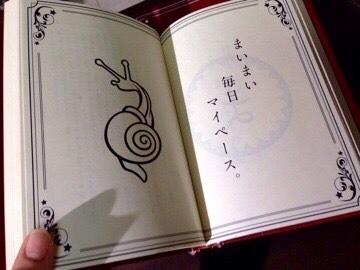 まいまい
毎日
マイペース。